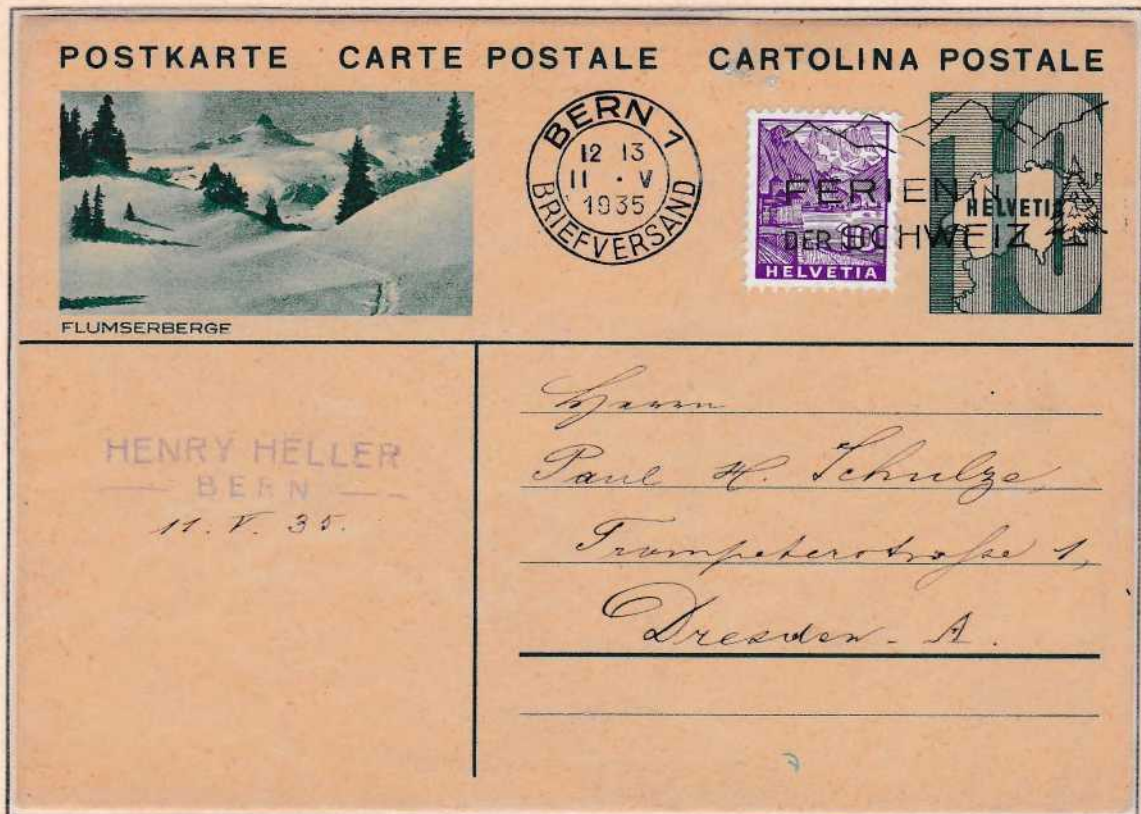 POSTKARTE CARTE POSTALE CARTOLINA POSTALE
BERN 1
12 13
11 · V
1935
BRIEFVERSAND
FERIEN IN
DER SCHWEIZ
HELVETIA
HELVETIA
10
FLUMSERBERGE
HENRY HELLER
— BERN —
11. V. 35.
Herrn
Paul H. Schulze
Trompeterstrasse 1,
Dresden - A.